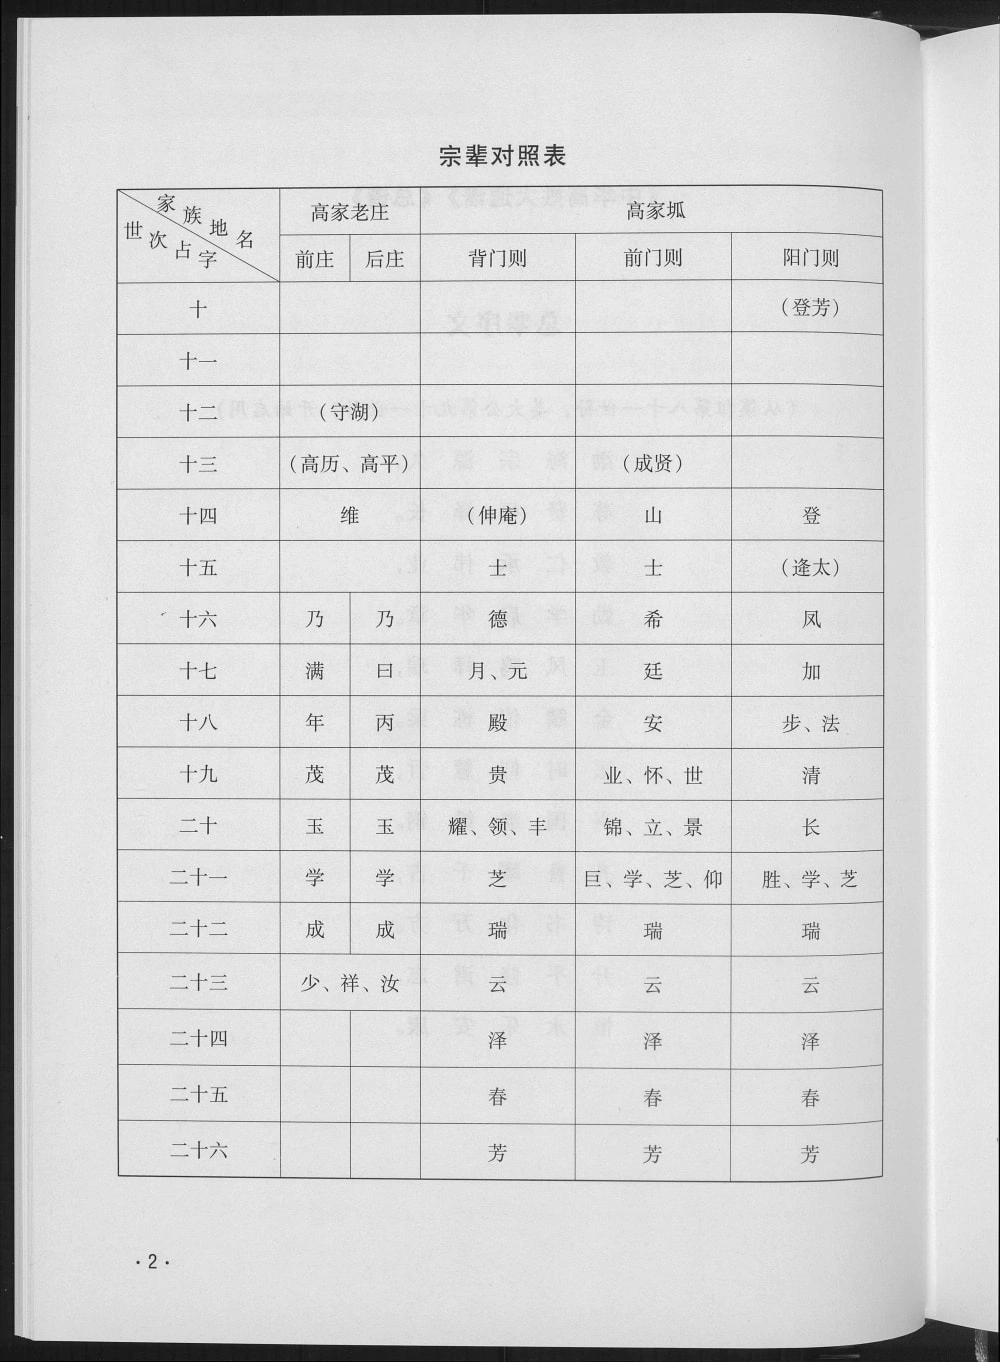 宗辈对照表
家族地名
世次占字
高家老庄 高家坬
前庄 后庄 背门则 前门则 阳门则
十 (登芳)
十一
十二 (守湖)
十三 (高历、高平) (成贤)
十四 维 (伸庵) 山 登
十五 士 士 (逢太)
十六 乃 乃 德 希 凤
十七 满 曰 月、元 廷 加
十八 年 丙 殿 安 步、法
十九 茂 茂 贵 业、怀、世 清
二十 玉 玉 耀、领、丰 锦、立、景 长
二十一 学 学 芝 巨、学、芝、仰 胜、学、芝
二十二 成 成 瑞 瑞 瑞
二十三 少、祥、汝 云 云 云
二十四 泽 泽 泽
二十五 春 春 春
二十六 芳 芳 芳
·2·